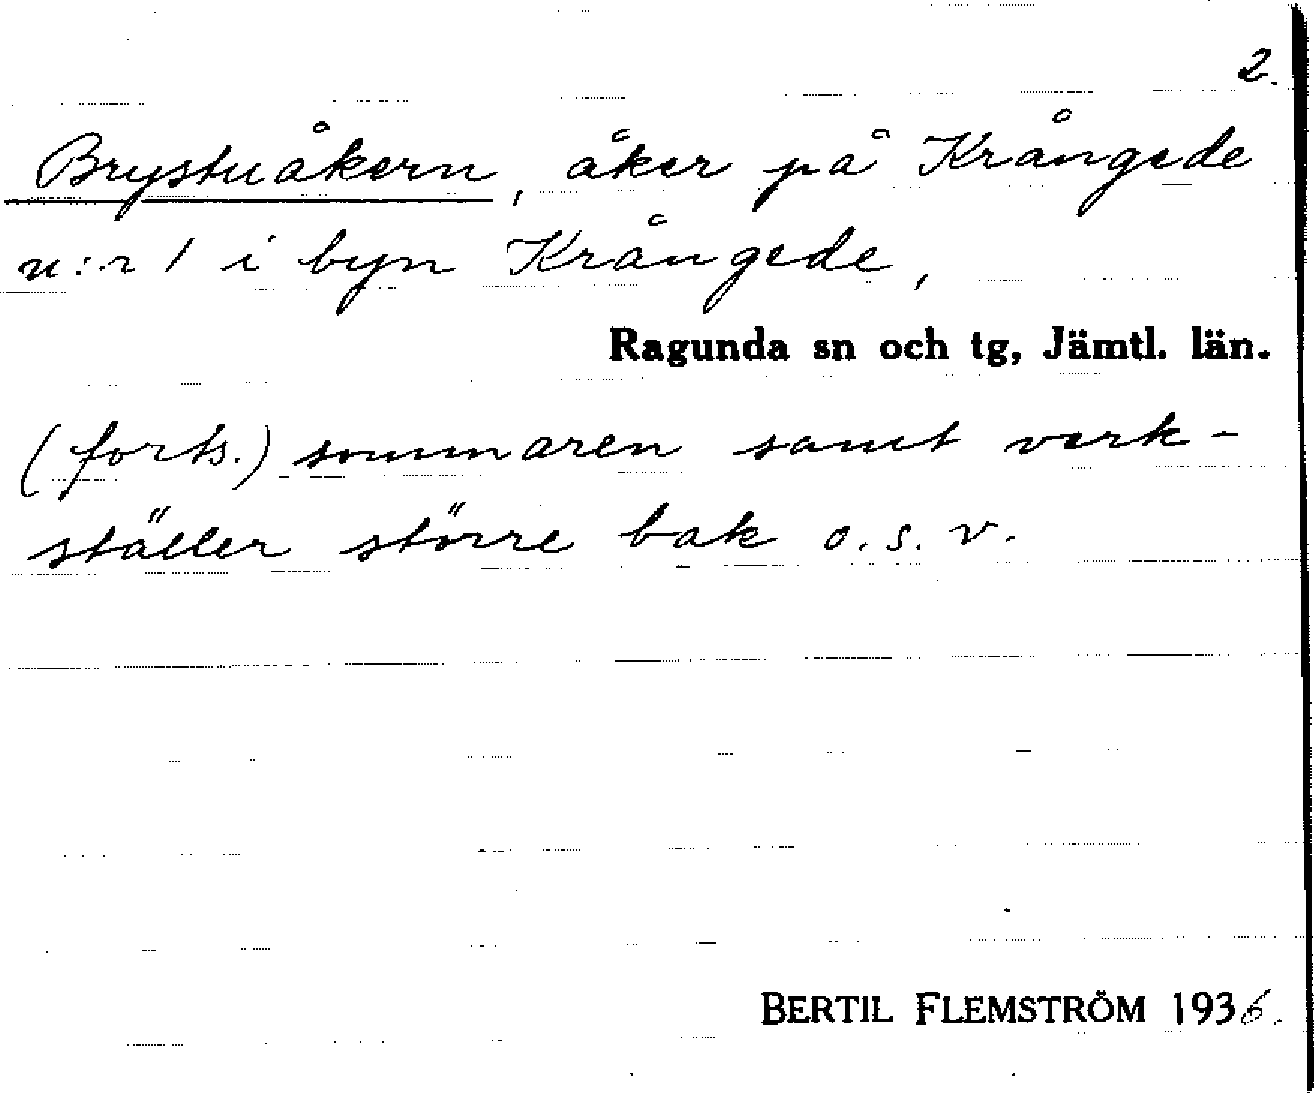 2.
Brystuåkern, åker på Krångede
n:r 1 i byn Krångede,
Ragunda sn och tg, Jämtl. län.
(forts.) sommaren samt verk-
ställer större bak o.s.v.
BERTIL FLEMSTRÖM 1936.